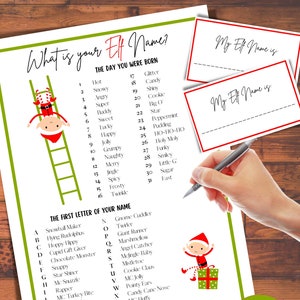 What is your Elf Name?
THE DAY YOU WERE BORN
1 Hot
2 Snowy
3 Angry
4 Super
5 Buddy
6 Sweet
7 Lucky
8 Happy
9 Jolly
10 Grumpy
11 Naughty
12 Merry
13 Jingle
14 Spicy
15 Frosty
16 Twinkle
17 Glitter
18 Candy
19 Shiny
20 Cookie
21 Big O'
22 Star
23 Peppermint
24 Pudding
25 HO-HO-HO
26 Holy Moly
27 Funky
28 Smiley
29 Little G
30 Sugar
31 Fast
THE FIRST LETTER OF YOUR NAME
A Snowball Maker
B Flying Rudolphus
C Hoppy Hippy
D Cupid Gift Giver
E Chocolate Monster
F Snappy
G Star Shiner
H Mc Sparkle
I Snazzy
J Rapper
MC Turkey Bite
N Gnome Cuddler
O Tinsler
P Giant Runner
Q Marshmellow
R Angel Catcher
S McJingle Baby
T Mistletoe
U Cookie Claus
V Mc Jolly
W Ponty Fars
X Candy Cane Nose
My Elf Name is
My Elf Name is